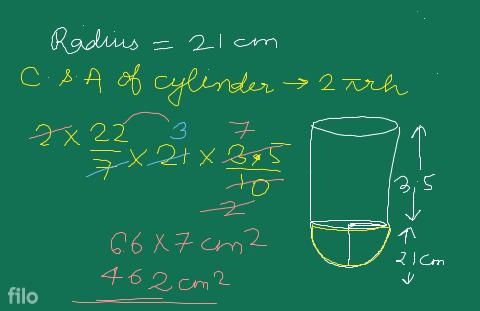 Radius = 21 cm
C.S.A of cylinder → 2πrh
2 × 22/7 × 21 × 3.5/10
3
7
2
66 × 7 cm²
462 cm²
3.5
21 cm
filo